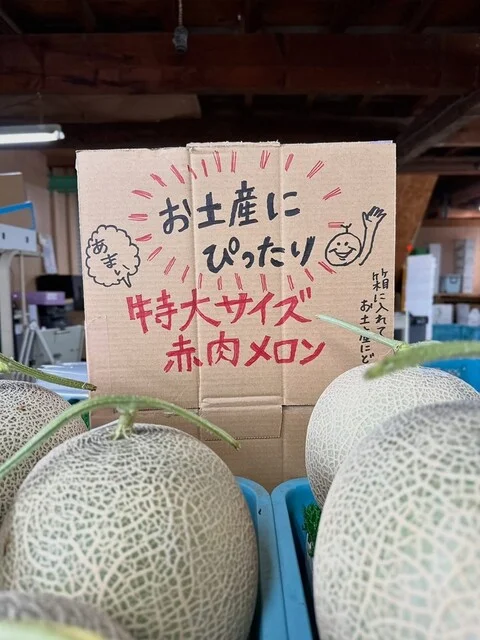 お土産に
ぴったり
あまーい
特大サイズ
赤肉メロン
箱に入れて
お土産にど